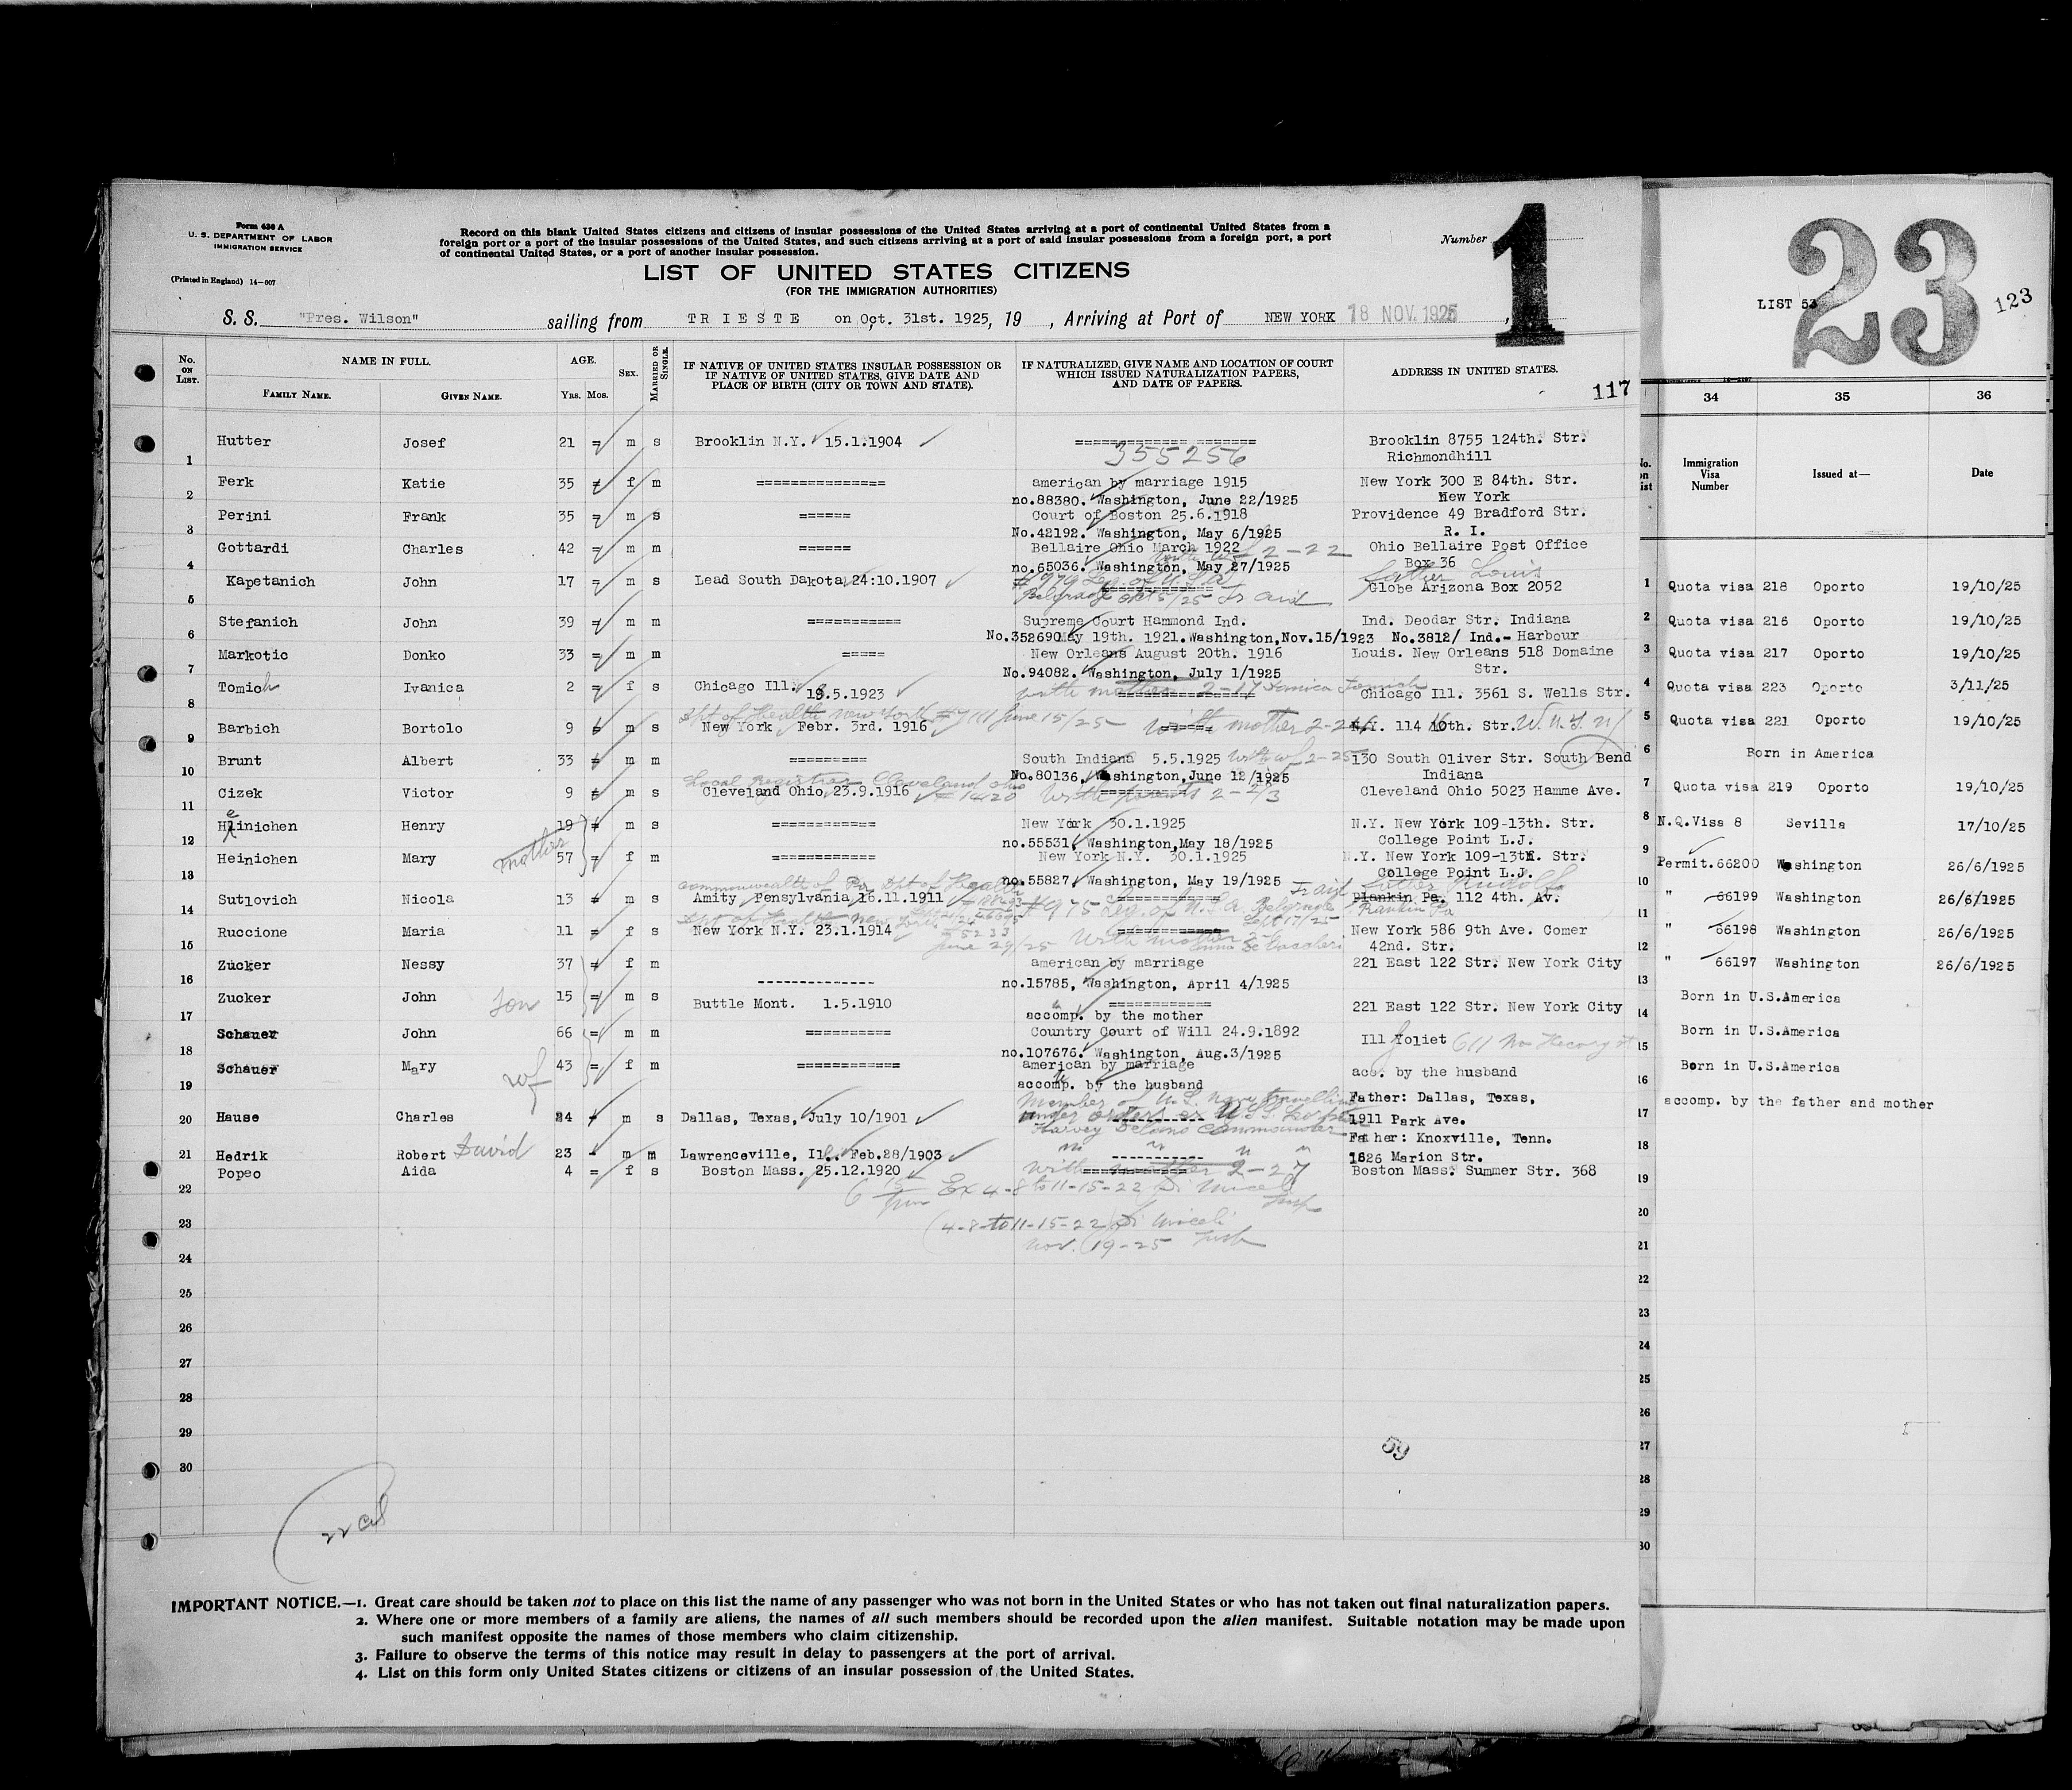 Form 630 A
U. S. DEPARTMENT OF LABOR
IMMIGRATION SERVICE
(Printed in England) 14—607
Record on this blank United States citizens and citizens of insular possessions of the United States arriving at a port of continental United States from a
foreign port or a port of the insular possessions of the United States, and such citizens arriving at a port of said insular possessions from a foreign port, a port
of continental United States, or a port of another insular possession.
Number 1
LIST OF UNITED STATES CITIZENS
(FOR THE IMMIGRATION AUTHORITIES)
S. S. "Pres. Wilson" sailing from TRIESTE on Oct. 31st. 1925, 19 , Arriving at Port of NEW YORK 18 NOV. 1925
No. ON LIST. NAME IN FULL. AGE. SEX. MARRIED OR SINGLE. IF NATIVE OF UNITED STATES INSULAR POSSESSION OR IF NATIVE OF UNITED STATES, GIVE DATE AND PLACE OF BIRTH (CITY OR TOWN AND STATE). IF NATURALIZED, GIVE NAME AND LOCATION OF COURT WHICH ISSUED NATURALIZATION PAPERS, AND DATE OF PAPERS. ADDRESS IN UNITED STATES.
FAMILY NAME. GIVEN NAME. Yrs. Mos. 117
1 Hutter Josef 21 = m s Brooklin N.Y. 15.1.1904 ============= ======= Brooklin 8755 124th. Str.
355256 Richmondhill
2 Ferk Katie 35 = f m =============== american by marriage 1915 New York 300 E 84th. Str.
no.88380. Washington, June 22/1925 New York
3 Perini Frank 35 = m s ====== Court of Boston 25.6.1918 Providence 49 Bradford Str.
No.42192. Washington, May 6/1925 R. I.
4 Gottardi Charles 42 = m m ====== Bellaire Ohio March 1922 Ohio Bellaire Post Office
with wf 2-22
no.65036. Washington, May 27/1925 Box 36
5 Kapetanich John 17 = m s Lead South Dakota 24:10.1907 #979 Leg. of U.S.A. father Louis
Belgrade Globe Arizona Box 2052
6 Stefanich John 39 = m m =========== Supreme Court Hammond Ind. Ind. Deodar Str. Indiana
No.352690 May 19th. 1921. Washington, Nov.15/1923 No.3812/ Ind.- Harbour
7 Markotic Donko 33 = m m ===== New Orleans August 20th. 1916 Louis. New Orleans 518 Domaine
No.94082. Washington, July 1/1925 Str.
8 Tomich Ivanica 2 = f s Chicago Ill. 18.5.1923 with mother 2-17 Chicago Ill. 3561 S. Wells Str.
Dpt of Health New York #7111 June 15/25
9 Barbich Bortolo 9 = m s New York Febr. 3rd. 1916 with mother N.Y. 114 10th. Str.
10 Brunt Albert 33 = m m ========= South Indiana 5.5.1925 with wf 2-25 130 South Oliver Str. South Bend
No.80136, Washington, June 12/1925 Indiana
Local Registrar Cleveland Ohio
11 Cizek Victor 9 = m s Cleveland Ohio, 23.9.1916 #1420 with parents 2-2/3 Cleveland Ohio 5023 Hamme Ave.
12 Heinichen Henry 19 = m s ============ New York 30.1.1925 N.Y. New York 109-13th. Str.
no.55531, Washington, May 18/1925 College Point L.J.
13 Heinichen Mary mother 57 = f m ============ New York N.Y. 30.1.1925 N.Y. New York 109-13th. Str.
no.55827, Washington, May 19/1925 College Point L.J.
Commonwealth of Pa. Dpt of Health father Rudolf
14 Sutlovich Nicola 13 = m s Amity Pensylvania 16.11.1911 #975 Leg. of U.S.A. Belgrade Plankin Pa. 112 4th. Av.
Dpt of Health New York Sept 17/25 Rankin Pa
15 Ruccione Maria 11 = f s New York N.Y. 23.1.1914 New York 586 9th Ave. Comer
June 29/25 with mother 42nd. Str.
16 Zucker Nessy 37 = f m american by marriage 221 East 122 Str. New York City
no.15785, Washington, April 4/1925
17 Zucker John son 15 = m s Buttle Mont. 1.5.1910 ============ 221 East 122 Str. New York City
accomp. by the mother
18 Schauer John 66 = m m ========== Country Court of Will 24.9.1892 Ill Joliet 611
no.107676. Washington, Aug.3/1925
19 Schauer Mary wf 43 = f m ============ american by marriage acc. by the husband
accomp. by the husband
Member of U.S. Navy travelling Father: Dallas, Texas,
20 Hause Charles 24 - m s Dallas, Texas, July 10/1901 under orders 1911 Park Ave.
Father: Knoxville, Tenn.
21 Hedrik Robert David 23 - m m Lawrenceville, Ill. Feb.28/1903 1626 Marion Str.
22 Popeo Aida 4 = f s Boston Mass. 25.12.1920 with mother 2-27 Boston Mass. Summer Str. 368
Ex 4-8 to 11-15-22 Di Miceli Insp
23 (4-8-to 11-15-22) Di Miceli
24 Nov. 19-25 Insp
25
26
27
28
29
30
59
IMPORTANT NOTICE.—1. Great care should be taken not to place on this list the name of any passenger who was not born in the United States or who has not taken out final naturalization papers.
2. Where one or more members of a family are aliens, the names of all such members should be recorded upon the alien manifest. Suitable notation may be made upon
such manifest opposite the names of those members who claim citizenship.
3. Failure to observe the terms of this notice may result in delay to passengers at the port of arrival.
4. List on this form only United States citizens or citizens of an insular possession of the United States.
LIST 53 23 123
34 35 36
Immigration Visa Number Issued at— Date
1 Quota visa 218 Oporto 19/10/25
2 Quota visa 216 Oporto 19/10/25
3 Quota visa 217 Oporto 19/10/25
4 Quota visa 223 Oporto 3/11/25
5 Quota visa 221 Oporto 19/10/25
6 Born in America
7 Quota visa 219 Oporto 19/10/25
8 N.Q.Visa 8 Sevilla 17/10/25
9 Permit.66200 Washington 26/6/1925
10 " 66199 Washington 26/6/1925
11 " 66198 Washington 26/6/1925
12 " 66197 Washington 26/6/1925
13 Born in U.S.America
14 Born in U.S.America
15 Born in U.S.America
16 accomp. by the father and mother
17
18
19
20
21
22
23
24
25
26
27
28
29
30